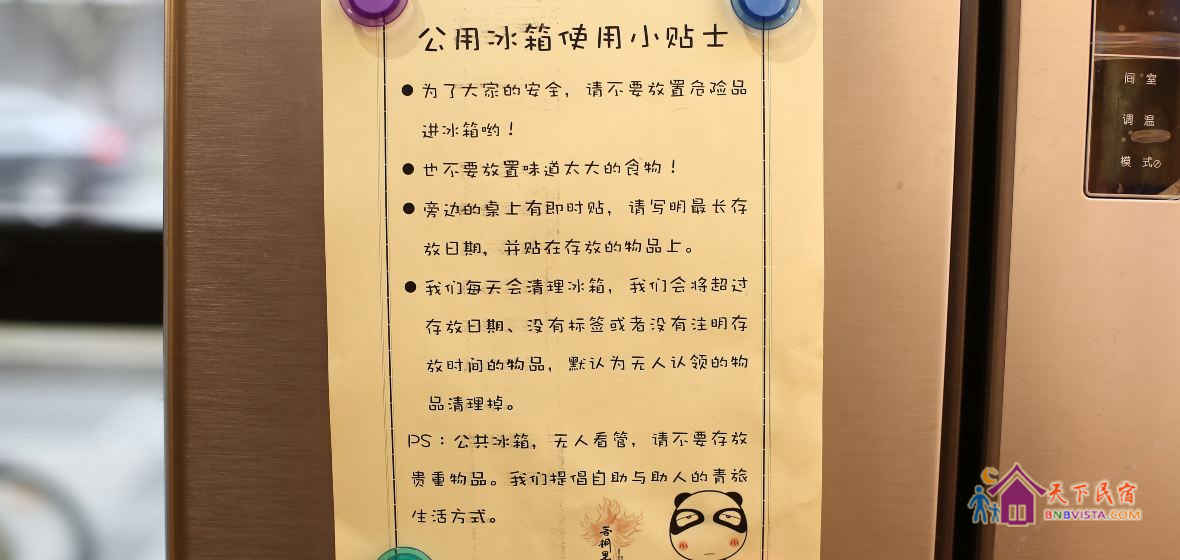 公用冰箱使用小贴士
●为了大家的安全，请不要放置危险品
进冰箱哟！
●也不要放置味道太大的食物！
●旁边的桌上有即时贴，请写明最长存
放日期，并贴在存放的物品上。
●我们每天会清理冰箱，我们会将超过
存放日期、没有标签或者没有注明存
放时间的物品，默认为无人认领的物
品清理掉。
PS：公共冰箱，无人看管，请不要存放
贵重物品。我们提倡自助与助人的青旅
生活方式。
间室
调温
模式
天下民宿
BNBVISTA.COM